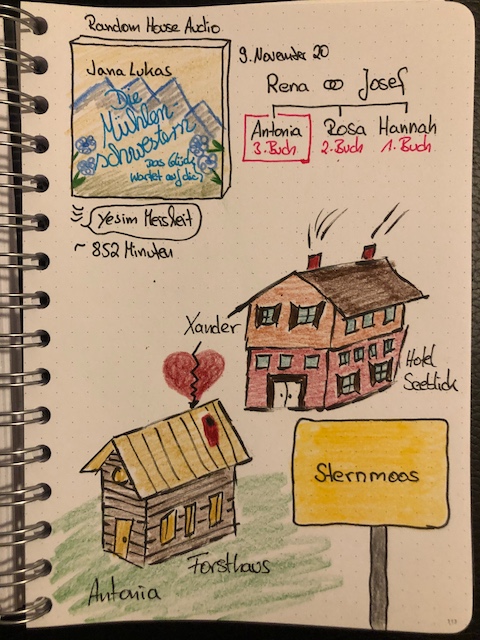 Random House Audio
Jana Lukas
Die
Mühlen
schwestern
Das Glück
wartet auf dich
9. November 20
Rena ⚭ Josef
Antonia Rosa Hannah
3. Buch 2. Buch 1. Buch
Yesim Meisheit
~ 852 Minuten
Xander
Hotel
Seeblick
Sternmoos
Forsthaus
Antonia